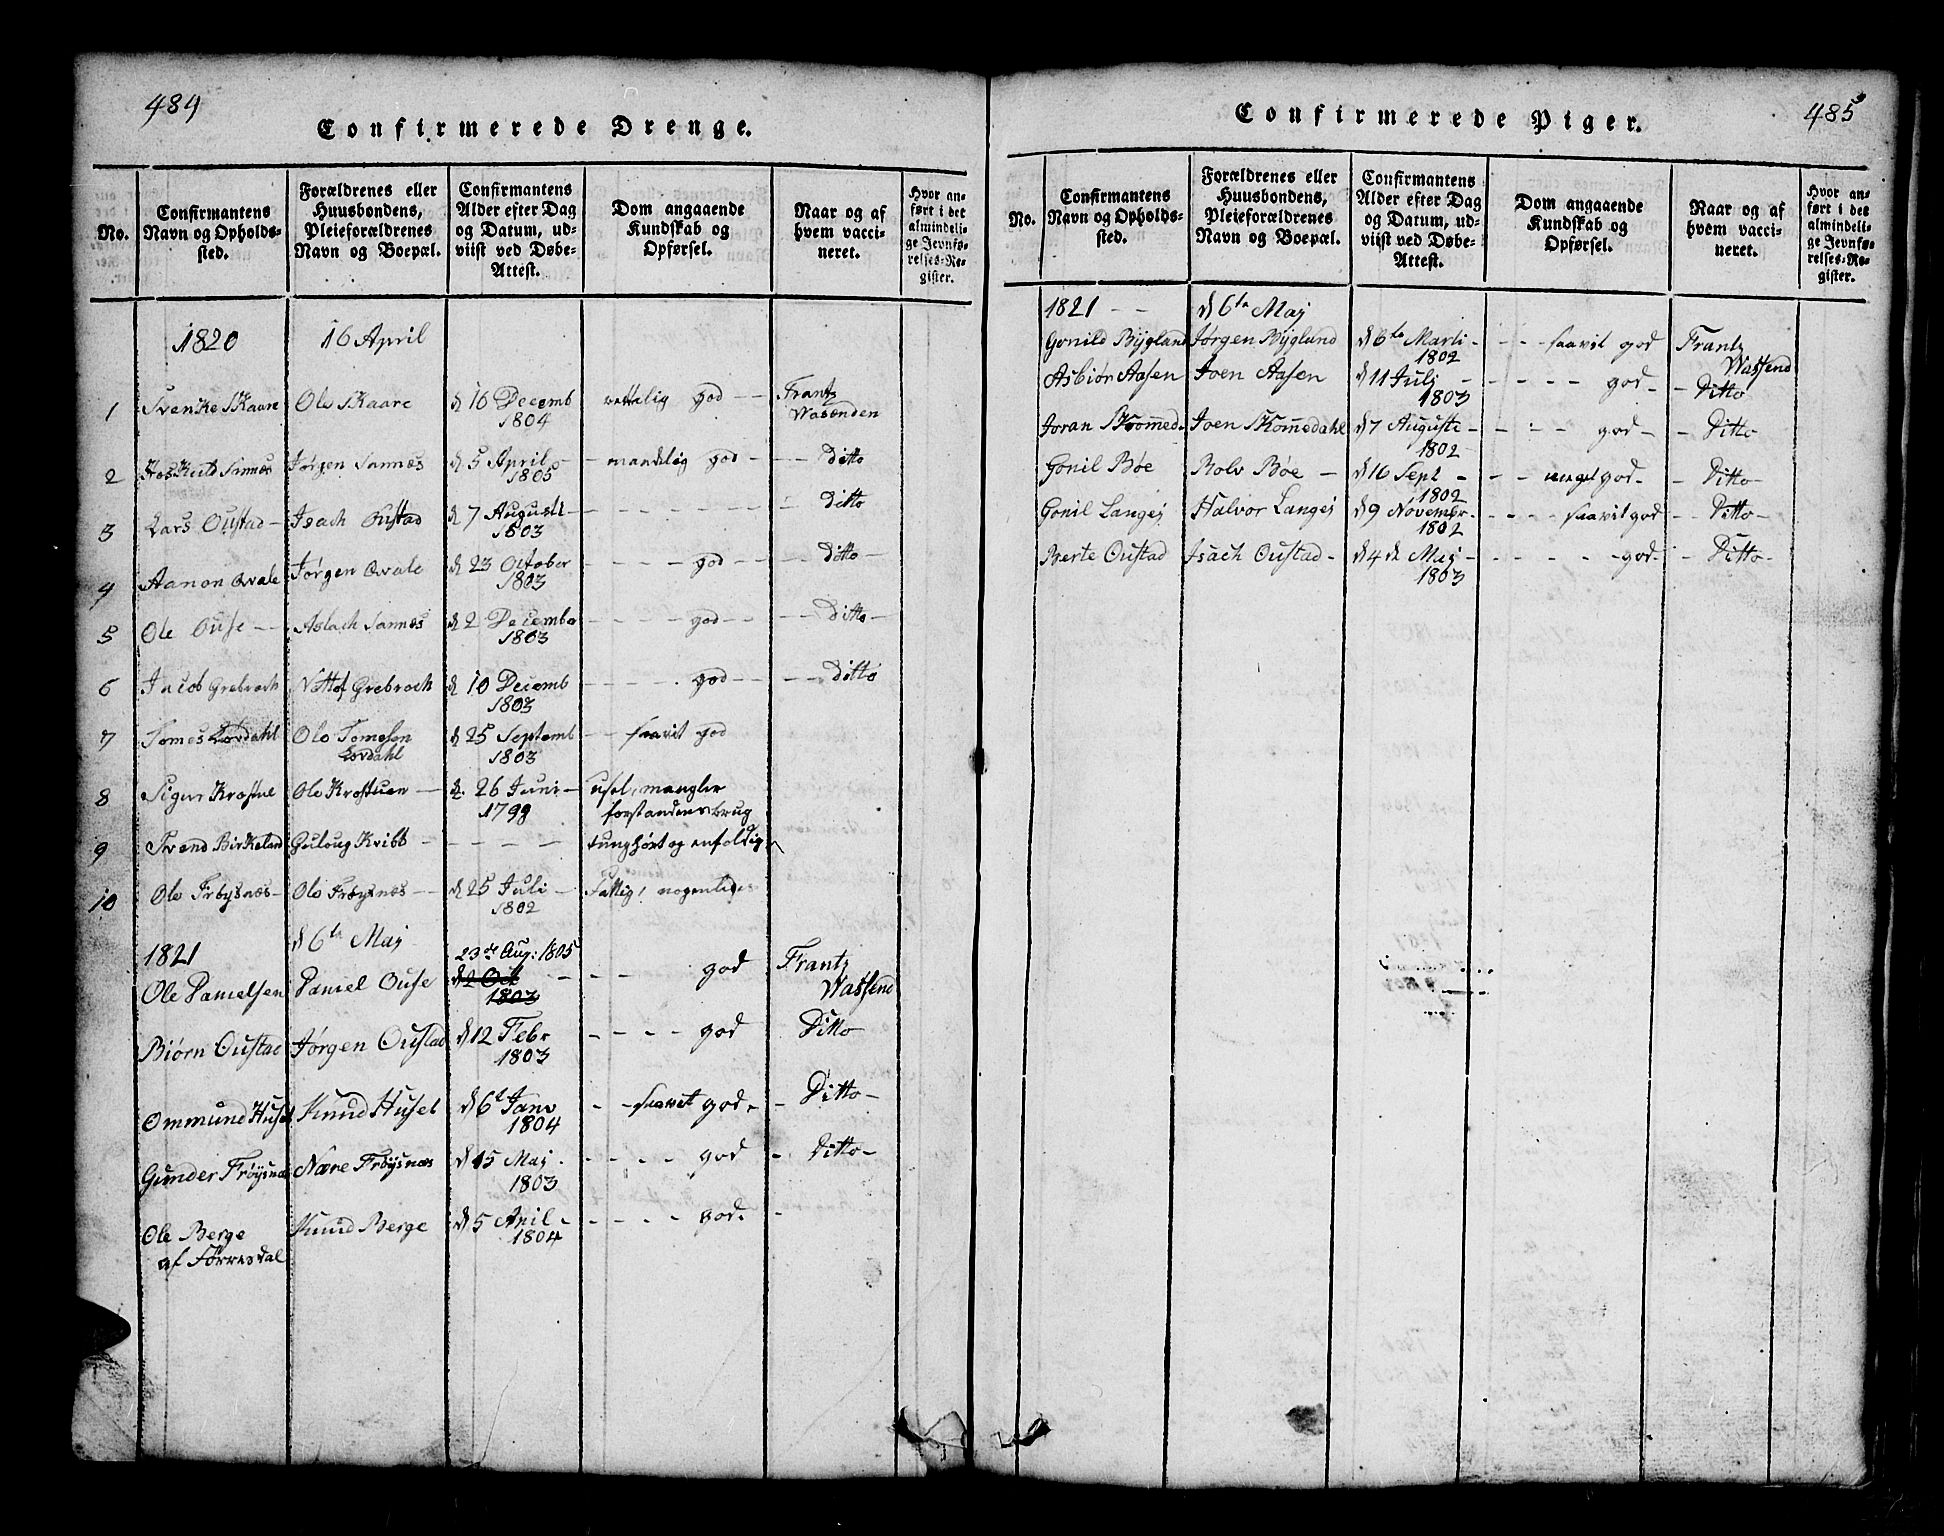 484
Confirmerede Drenge.
No.
Confirmantens Navn og Opholds-sted.
Forældrenes eller Huusbondens, Pleieforældrenes Navn og Boepæl.
Confirmantens Alder efter Dag og Datum, ud-viist ved Døbe-Attest.
Dom angaaende Kundskab og Opførsel.
Naar og af hvem vacci-neret.
Hvor an-ført i det almindeli-ge Jevnfø-relses-Re-gister.
1820 16 April
1 Svenke Skaare Ole Skaare d 16 Decemb 1804 god -- Frantz Wasenden
2 Sannes Jørgen Sannes d 5 April - 1805 - mandelig god - --- Ditto
3 Lars Oustad - Isach Oustad d 7 Augusti - 1803 - - - - - - - - - Ditto
4 Aanon Qvale Jørgen Qvale d 23 October 1803 - - - - god -- --- Ditto -
5 Ole Ouse -- Aslach Sannes d 2 Decembr 1803 - - - - god -- --- Ditto -
6 Jacob Grebroch Grebroch d 10 Decemb 1803 - - - - god -- --- Ditto
7 Tomes Lovdahl Ole Tomesen Lovdahl d 25 Septemb 1803 -- saavit god
8 Sigur Ole d. 26 Juni - 1799 usel, mangler forstandens brug
9 Svend Birkeland Guloug - - - - - tunghørt og enfoldig
10 Ole Frøysnæs - Ole Frøysnæs -- d 25 Juli - 1802 Fattig, nogenlide
1821 d 6te Maj
Ole Danielsen Daniel Ouse 23de Aug: 1805 d 2 Oct 1803 - -- god Frantz Wassend
Biørn Oustad Jørgen Oustad d 12 Febr 1803 - - - - god Ditto
Ommund Husel Knud Husel d 6t Janv 1804 - - saavet god - - Ditto -
Gunder Frøysnæs Nære Frøysnæs d 15 Maj - 1803 - - - - god - Ditto -
Ole Berge af Førresdal Knud Berge d 5 April - 1804 - - - - god - -
485
Confirmerede Piger.
No.
Confirmantens Navn og Opholds-sted.
Forældrenes eller Huusbondens, Pleieforældrenes Navn og Boepæl.
Confirmantens Alder efter Dag og Datum, ud-viist ved Døbe-Attest.
Dom angaaende Kundskab og Opførsel.
Naar og af hvem vacci-neret.
Hvor an-ført i det almindeli-ge Jevnfø-relses-Re-gister.
1821 - - d 6te Maj
Gonild Bygland Jørgen Bygland d 6te Marti - 1802 - - - saavit god Frantz Wassend
Asbiør Aasen Joen Aasen d 11 Juli - 1803 - - - - - god - - Ditto
Joran Skomed. Joen Skomedahl d 7 Auguste - 1802 - - - - god - - Ditto
Gonil Bøe Rolv Bøe - d 16 Sept - 1802 - - - meget god - - Ditto -
Gonil Langej Halvor Langej d 9 November - 1802 - - - - saavit god - Ditto -
Berte Oustad Isach Oustad - d 4 de Maj - 1803 - - - - - god - - Ditto -